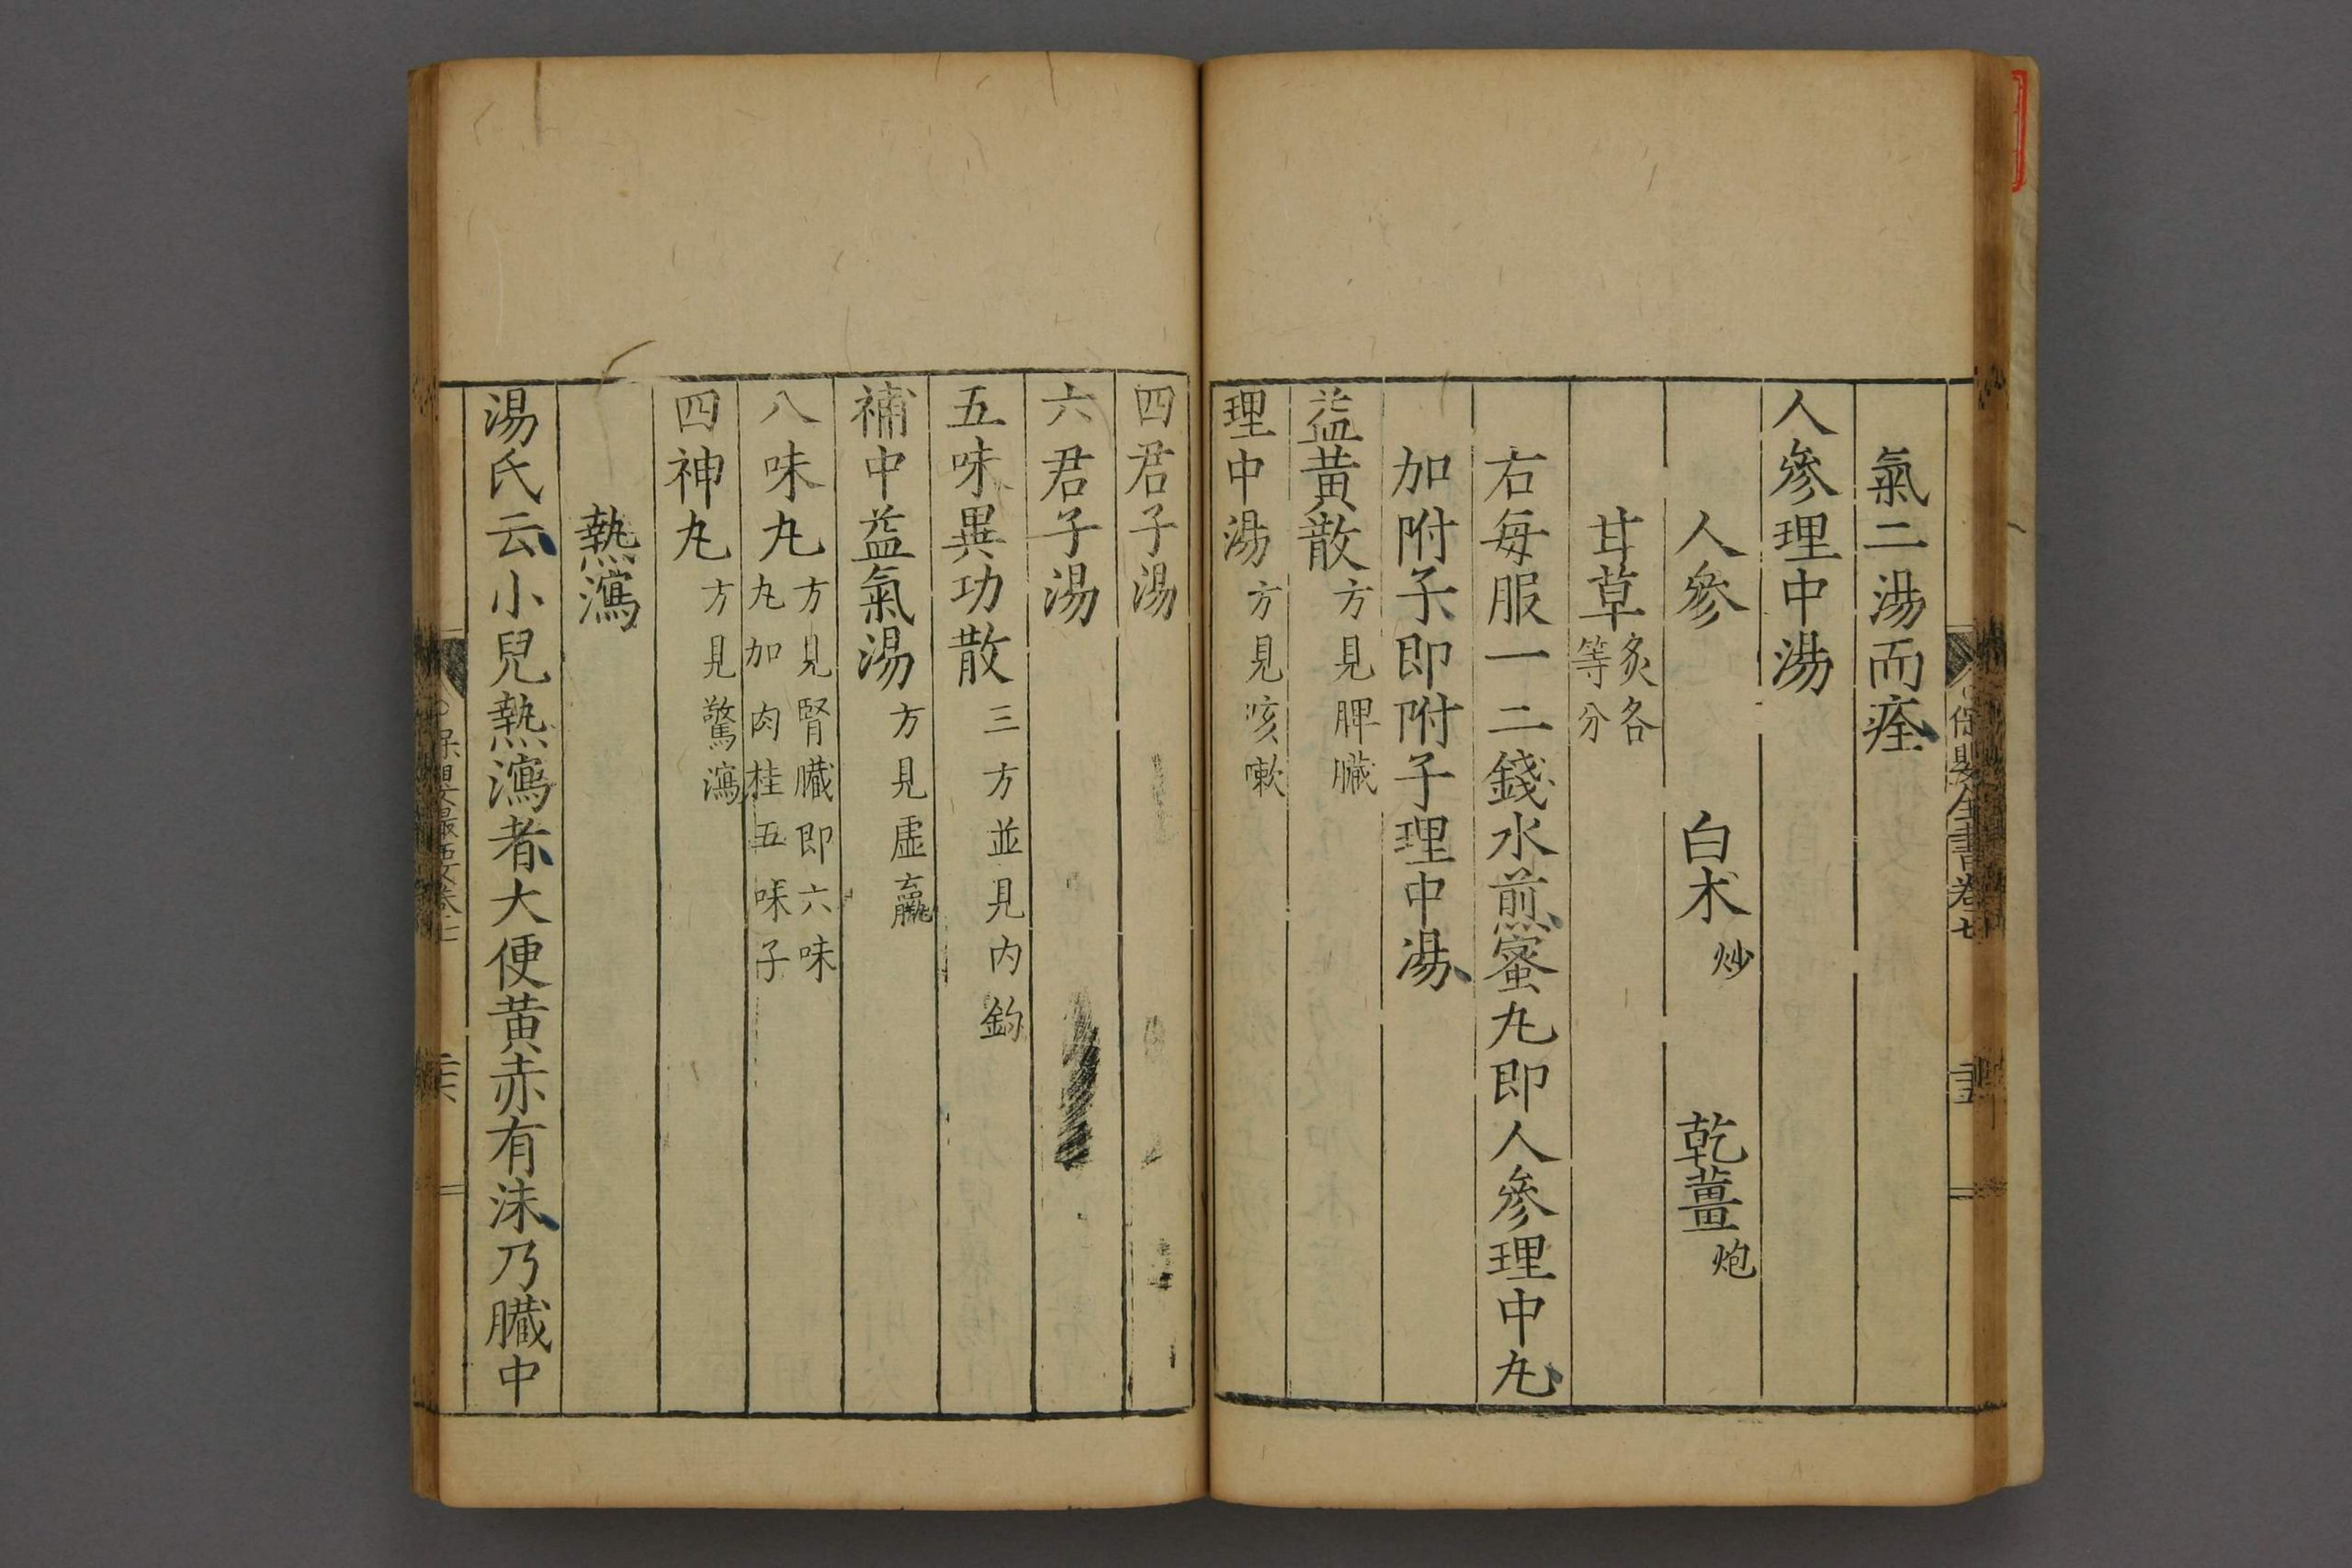 氣二湯而痊
人參理中湯
人參 白术炒 乾薑炮
甘草炙各等分
右每服一二錢水煎蜜丸即人參理中丸
加附子即附子理中湯
益黃散方見脾臟
理中湯方見咳嗽
四君子湯
六君子湯
五味異功散三方並見內釣
補中益氣湯方見虛羸
八味丸方見腎臟即六味丸加肉桂五味子
四神丸方見驚瀉
熱瀉
湯氏云小兒熱瀉者大便黃赤有沫乃臟中
保嬰全書卷七